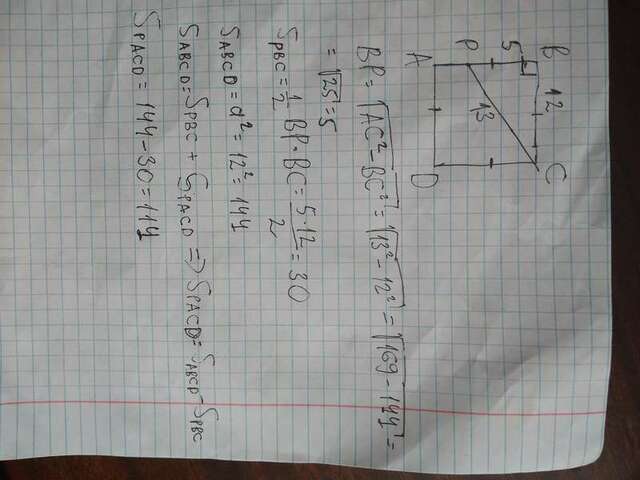 B 12 C
5
P 13
A D
BP = √AC² - BC² = √13² - 12² = √169 - 144 =
= √25 = 5
S_PBC = 1/2 BP · BC = 5·12/2 = 30
S_ABCD = a² = 12² = 144
S_ABCD = S_PBC + S_PACD => S_PACD = S_ABCD - S_PBC
S_PACD = 144 - 30 = 114